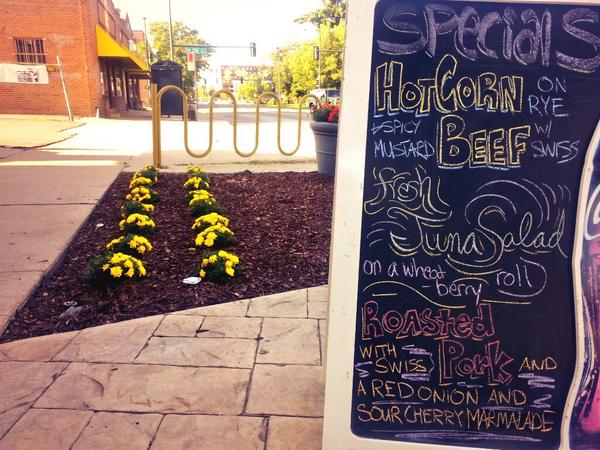 Specials
HOT CORN ON
RYE
+SPICY
MUSTARD BEEF W/
SWISS
fresh
Tuna Salad
on a wheat roll
berry
ROASTED
WITH
SWISS Pork AND
A RED ONION AND
SOUR CHERRY MARMALADE